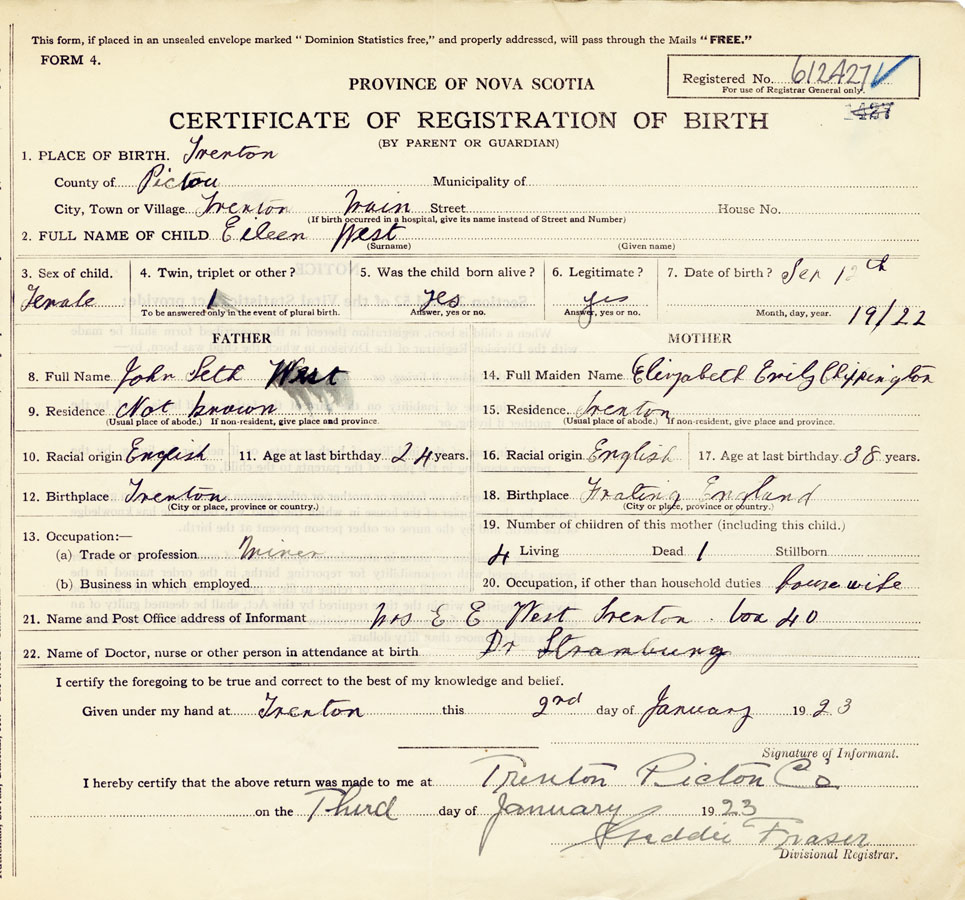 This form, if placed in an unsealed envelope marked "Dominion Statistics free," and properly addressed, will pass through the Mails "FREE."
FORM 4.
Registered No. 612A27
For use of Registrar General only.
PROVINCE OF NOVA SCOTIA
CERTIFICATE OF REGISTRATION OF BIRTH
(BY PARENT OR GUARDIAN)
1. PLACE OF BIRTH. Trenton
County of Pictou Municipality of
City, Town or Village Trenton Main Street House No.
(If birth occurred in a hospital, give its name instead of Street and Number)
2. FULL NAME OF CHILD Eileen West
(Surname) (Given name)
3. Sex of child. 4. Twin, triplet or other? 5. Was the child born alive? 6. Legitimate? 7. Date of birth? Sep 12th
Female 1 yes yes
To be answered only in the event of plural birth. Answer, yes or no. Answer, yes or no. Month, day, year. 19/22
FATHER MOTHER
8. Full Name John Seth West 14. Full Maiden Name Elizabeth Emily Chippington
9. Residence Not known 15. Residence. Trenton
(Usual place of abode.) If non-resident, give place and province. (Usual place of abode.) If non-resident, give place and province.
10. Racial origin English 11. Age at last birthday 24 years. 16. Racial origin English 17. Age at last birthday 38 years.
12. Birthplace Trenton 18. Birthplace Frating England
(City or place, province or country.) (City or place, province or country.)
13. Occupation:— 19. Number of children of this mother (including this child.)
(a) Trade or profession Miner 4 Living Dead 1 Stillborn
(b) Business in which employed 20. Occupation, if other than household duties house wife
21. Name and Post Office address of Informant Mrs E E West Trenton. box 40
22. Name of Doctor, nurse or other person in attendance at birth Dr
I certify the foregoing to be true and correct to the best of my knowledge and belief.
Given under my hand at Trenton this 2nd day of January 1923
Signature of Informant.
I hereby certify that the above return was made to me at Trenton Pictou Co
on the Third day of January 1923
Fraser
Divisional Registrar.